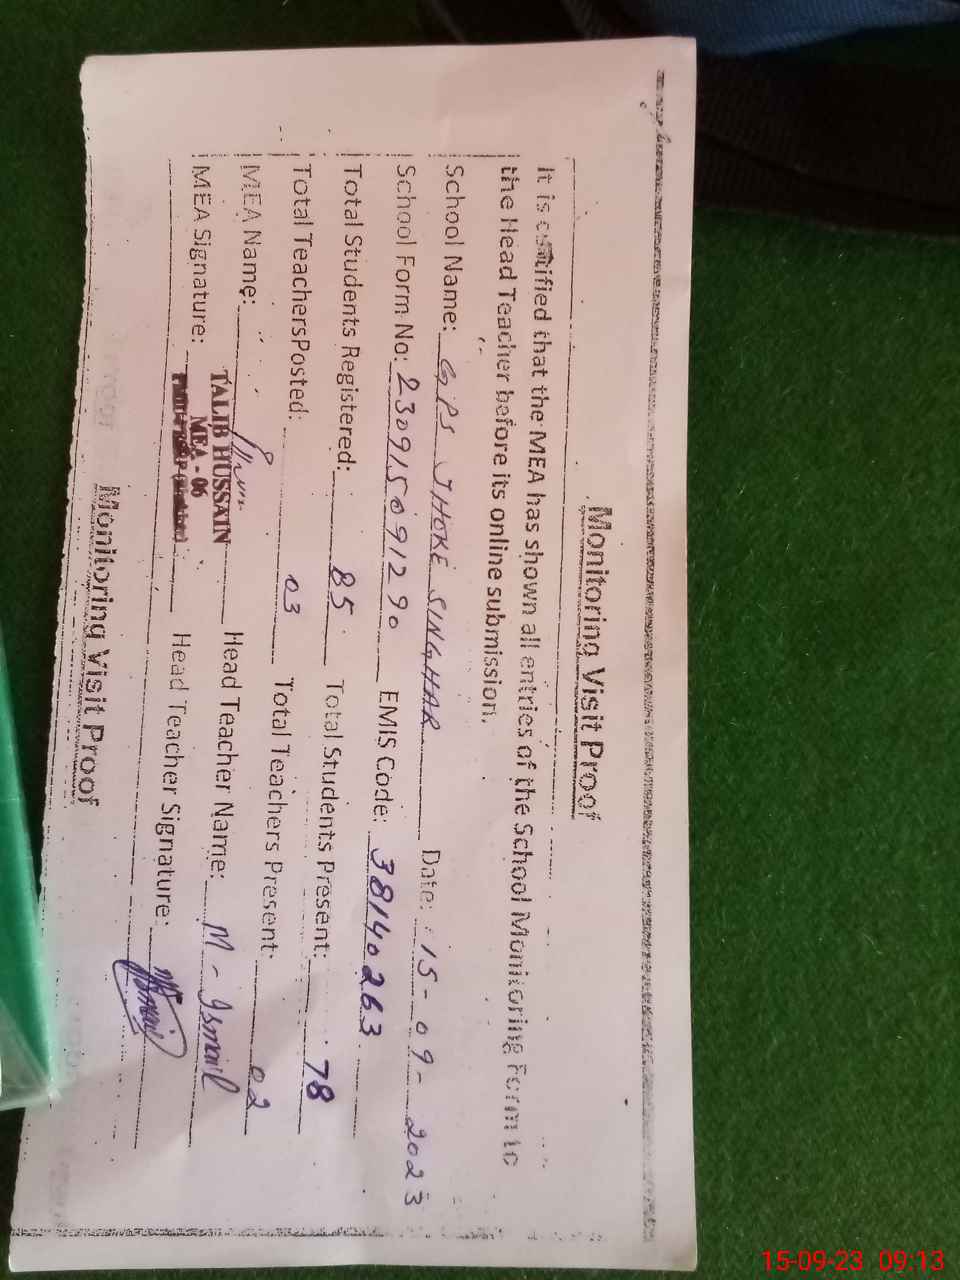 Monitoring Visit Proof
It is certified that the MEA has shown all entries of the School Monitoring Form to
the Head Teacher before its online submission.
School Name: GPS JHOKE SINGHAR Date: 15-09-2023
School Form No: 230915091290 EMIS Code: 38140263
Total Students Registered: 85 Total Students Present: 78
Total TeachersPosted: 03 Total Teachers Present: 02
MEA Name: Head Teacher Name: M-Ismail
TALIB HUSSAIN
MEA Signature: MEA - 06 Head Teacher Signature:
Monitoring Visit Proof
15-09-23 09:13